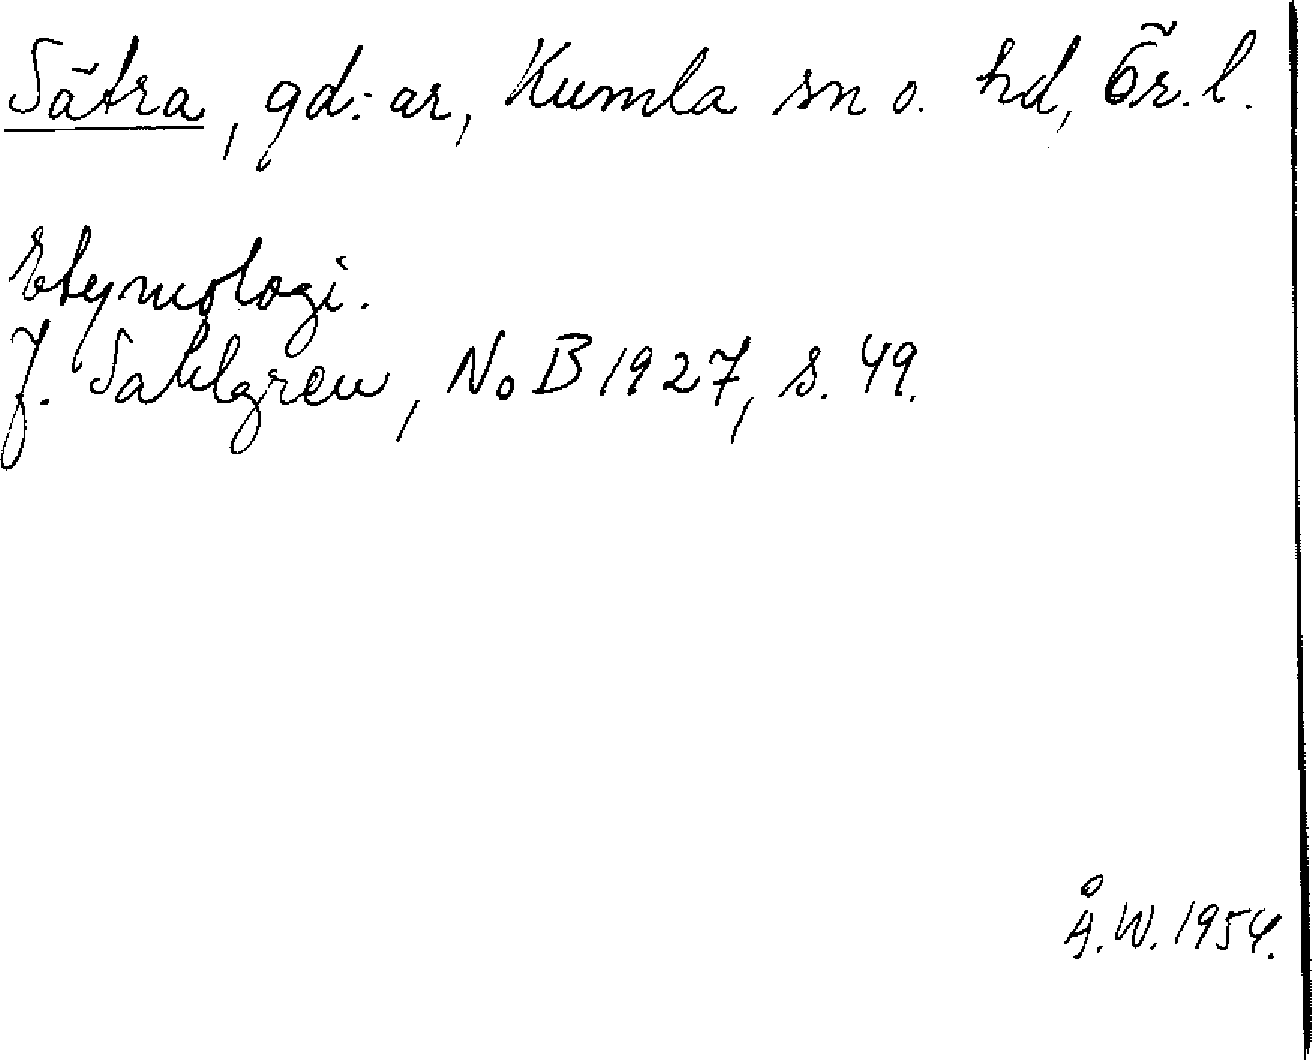 Sätra, gd:ar, Kumla sn o. hd, Ör.l.
Etymologi.
J. Sahlgren, NoB 1927, s. 49.
Å.W. 1954.